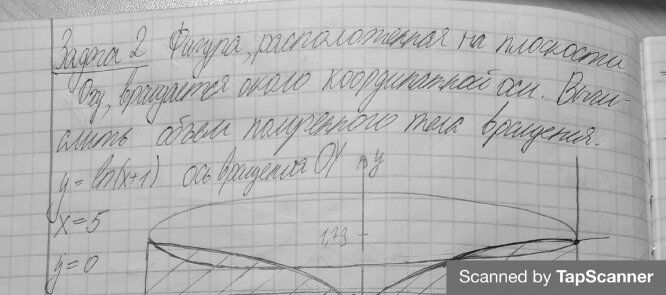 Задача 2 Фигура, расположенная на плоскости
Oxy, вращается около координатной оси. Вычи-
слить объем полученного тела вращения.
y = ln(x+1) ось вращения OY y
x = 5
1,79
y = 0
Scanned by TapScanner